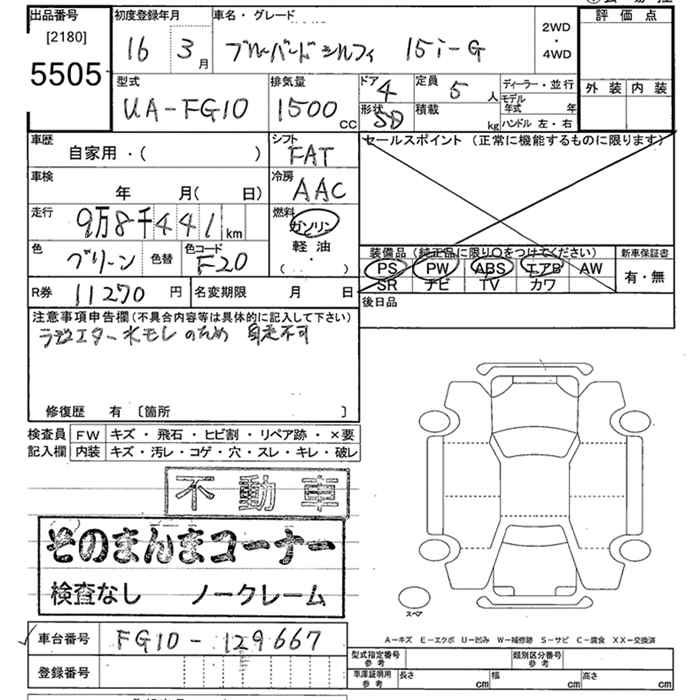 出品番号
[2180]
5505
初度登録年月
16 3月
車名・グレード
ブルーバードシルフィ 15i-G
2WD
・
4WD
評価点
外装 内装
型式
UA-FG10
排気量
1500 CC
ドア 4
形状 SD
定員 5 人
積載 kg
ディーラー・並行
モデル年式 年
ハンドル 左・右
車歴
自家用・( )
シフト
FAT
車検
年 月( 日)
冷房
AAC
走行
9万8千441 km
燃料
ガソリン
軽油
( ・ )
色
グリーン
色替
色コード
F20
R券 11270 円
名変期限 月 日
セールスポイント (正常に機能するものに限ります)
装備品 (純正品に限り○をつけてください)
PS PW ABS エアB AW
SR ナビ TV カワ
新車保証書
有・無
後日品
注意事項申告欄(不具合内容等は具体的に記入して下さい)
ラジエター水モレのため 自走不可
修復歴 有 [箇所 ]
検査員 FW キズ・飛石・ヒビ割・リペア跡・×要
記入欄 内装 キズ・汚レ・コゲ・穴・スレ・キレ・破レ
不動車
そのまんまコーナー
検査なし ノークレーム
スペア
A-キズ E-エクボ U-凹み W-補修跡 S-サビ C-腐食 XX-交換済
車台番号 FG10-129667
登録番号
型式指定番号 参考
類別区分番号 参考
車庫証明用 参考
長さ cm 幅 cm 高さ cm